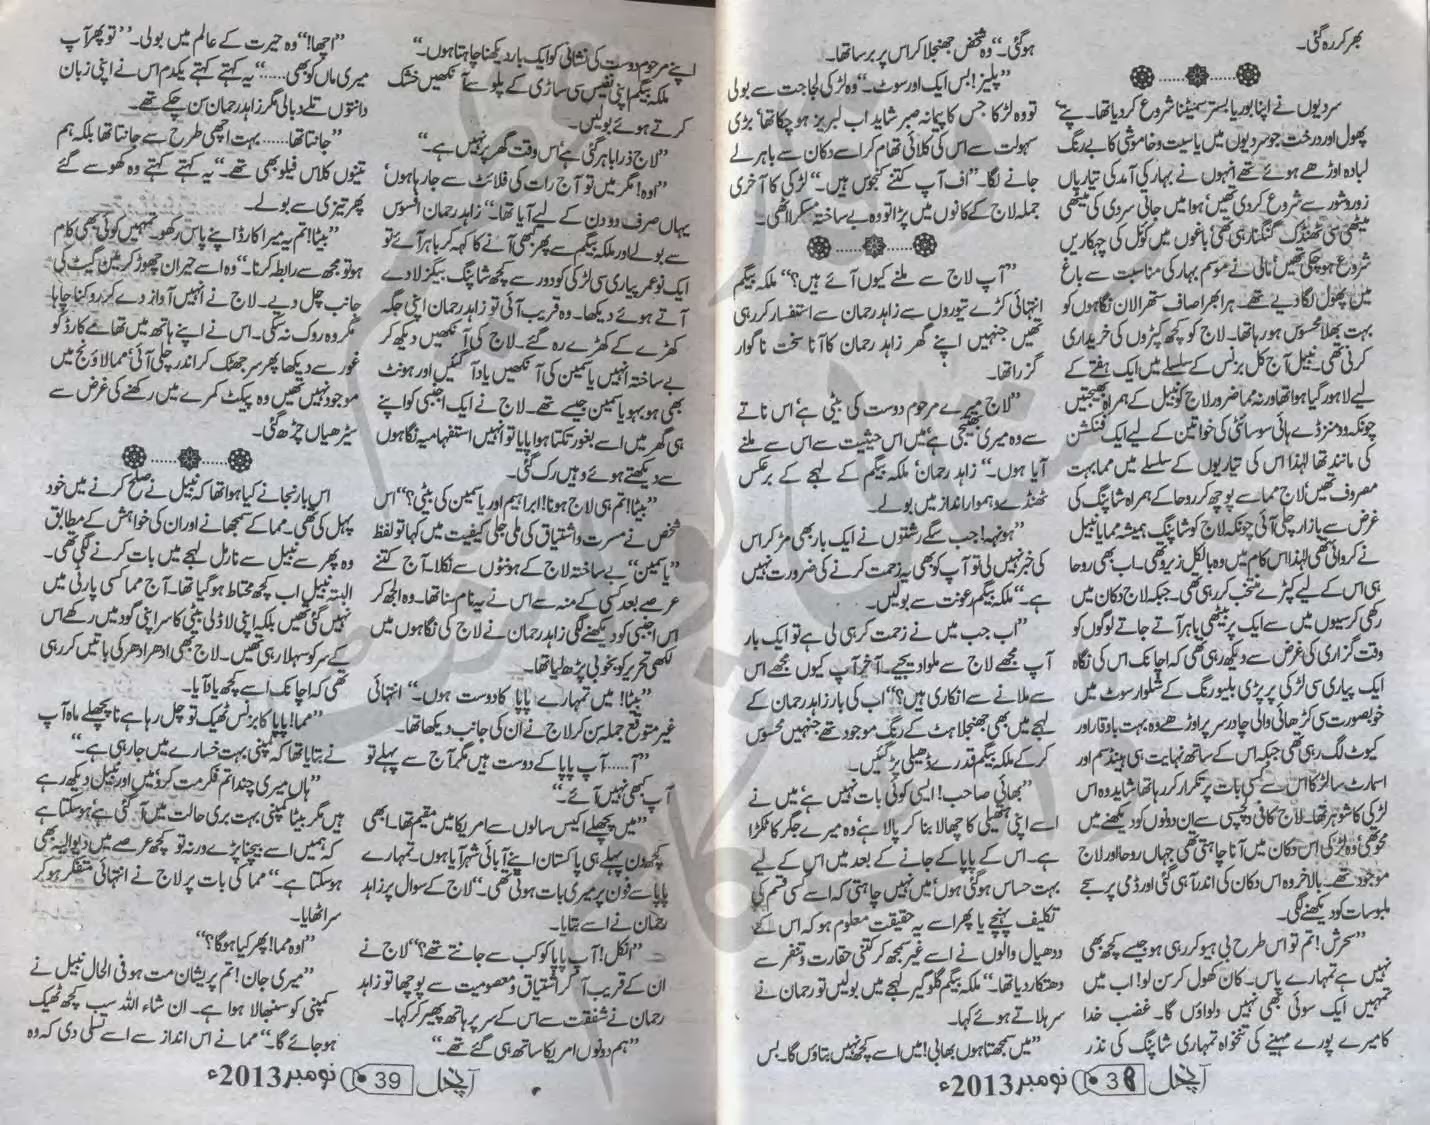 بھر کر رہ گئی۔
سردیوں نے اپنا بوریا بستر سمیٹنا شروع کردیا تھا۔ پتے'
پھول اور درخت جو سردیوں میں یاسیت و خاموشی کا بے رنگ
لبادہ اوڑھے ہوئے تھے انہوں نے بہار کی آمد کی تیاریاں
زور و شور سے شروع کردی تھیں' ہوا میں جاتی سردی کی میٹھی
میٹھی سی ٹھنڈک گنگنا رہی تھی' باغوں میں کوئل کی چہکاریں
شروع ہوچکی تھیں' مالی نے موسم بہار کی مناسبت سے باغ
میں پھول لگا دیے تھے۔ ہرا بھرا صاف ستھرا لان نگاہوں کو
بہت بھلا محسوس ہورہا تھا۔ لاج کو کچھ کپڑوں کی خریداری
کرنی تھی۔ نبیل آج کل بزنس کے سلسلے میں ایک ہفتے کے
لیے لاہور گیا ہوا تھا ورنہ مما ضرور لاج کو نبیل کے ہمراہ بھیجتیں
چونکہ ومنز ڈے ہائی سوسائٹی کی خواتین کے لیے ایک فنکشن
کی مانند تھا لہٰذا اس کی تیاریوں کے سلسلے میں مما بہت
مصروف تھیں' لاج مما سے پوچھ کر روحا کے ہمراہ شاپنگ کی
غرض سے بازار چلی آئی چونکہ لاج کو شاپنگ ہمیشہ مما یا نبیل
نے کروائی تھی لہٰذا اس کام میں وہ بالکل زیرو تھی۔ اب بھی روحا
ہی اس کے لیے کپڑے منتخب کررہی تھی۔ جبکہ لاج دکان میں
رکھی کرسیوں میں سے ایک پر بیٹھی باہر آتے جاتے لوگوں کو
وقت گزاری کی غرض سے دیکھ رہی تھی کہ اچانک اس کی نگاہ
ایک پیاری سی لڑکی پر پڑی بلیو رنگ کے شلوار سوٹ میں
خوبصورت سی کڑھائی والی چادر سر پر اوڑھے وہ بہت باوقار اور
کیوٹ لگ رہی تھی جبکہ اس کے ساتھ نہایت ہی ہینڈسم اور
اسمارٹ سا لڑکا اس سے کسی بات پر تکرار کررہا تھا' شاید وہ اس
لڑکی کا شوہر تھا۔ لاج کافی دلچسپی سے ان دونوں کو دیکھنے میں
محو تھی' وہ لڑکی اس دکان میں آنا چاہتی تھی جہاں روحا اور لاج
موجود تھے۔ بالآخر وہ اس دکان کی اندر آ ہی گئی اور ڈمی پر سجے
ملبوسات کو دیکھنے لگی۔
"سحرش! تم تو اس طرح بی ہیو کررہی ہو جیسے کچھ بھی
نہیں ہے تمہارے پاس۔ کان کھول کر سن لو! اب میں
تمہیں ایک سوئی بھی نہیں دلواؤں گا۔ غضب خدا
کا میرے پورے مہینے کی تنخواہ تمہاری شاپنگ کی نذر
ہوگئی۔" وہ شخص جھنجلا کر اس پر برسا تھا۔
"پلیز! بس ایک اور سوٹ۔" وہ لڑکی لجاجت سے بولی
تو وہ لڑکا جس کا پیمانہ صبر شاید اب لبریز ہوچکا تھا' بڑی
سہولت سے اس کی کلائی تھام کر اسے دکان سے باہر لے
جانے لگا۔ "اف آپ کتنے کنجوس ہیں۔" لڑکی کا آخری
جملہ لاج کے کانوں میں پڑا تو وہ بے ساختہ مسکرا اٹھی۔
"آپ لاج سے ملنے کیوں آئے ہیں؟" ملکہ بیگم
انتہائی کڑے تیوروں سے زاہد رحمان سے استفسار کررہی
تھیں جنہیں اپنے گھر زاہد رحمان کا آنا سخت ناگوار
گزرا تھا۔
"لاج میرے مرحوم دوست کی بیٹی ہے' اس ناتے
سے وہ میری بھتیجی ہے' میں اس حیثیت سے اس سے ملنے
آیا ہوں۔" زاہد رحمان' ملکہ بیگم کے لہجے کے برعکس
ٹھنڈے و ہموار انداز میں بولے۔
"ہونہہ! جب سگے رشتوں نے ایک بار بھی مڑ کر اس
کی خبر نہیں لی تو آپ کو بھی یہ زحمت کرنے کی ضرورت نہیں
ہے۔" ملکہ بیگم رعونت سے بولیں۔
"اب جب میں نے زحمت کر ہی لی ہے تو ایک بار
آپ مجھے لاج سے ملوا دیجیے۔ آخر آپ کیوں مجھے اس
سے ملانے سے انکاری ہیں؟" اب کی بار زاہد رحمان کے
لہجے میں بھی جھنجلاہٹ کے رنگ موجود تھے جنہیں محسوس
کرکے ملکہ بیگم قدرے ڈھیلی پڑ گئیں۔
"بھائی صاحب! ایسی کوئی بات نہیں ہے' میں نے
اسے اپنی ہتھیلی کا چھالا بنا کر پالا ہے' وہ میرے جگر کا ٹکڑا
ہے۔ اس کے پاپا کے جانے کے بعد میں اس کے لیے
بہت حساس ہوگئی ہوں' میں نہیں چاہتی کہ اسے کسی قسم کی
تکلیف پہنچے یا پھر اسے یہ حقیقت معلوم ہو کہ اس کے
ددھیال والوں نے اسے غیر سمجھ کر کتنی حقارت و تنفر سے
دھتکار دیا تھا۔" ملکہ بیگم گلوگیر لہجے میں بولیں تو رحمان نے
سر ہلاتے ہوئے کہا۔
"میں سمجھتا ہوں بھابی! میں اسے کچھ نہیں بتاؤں گا۔ بس
آنچل 38 نومبر 2013ء
اپنے مرحوم دوست کی نشانی کو ایک بار دیکھنا چاہتا ہوں۔"
ملکہ بیگم اپنی نفیس سی ساڑی کے پلو سے آنکھیں خشک
کرتے ہوئے بولیں۔
"لاج ذرا باہر گئی ہے' اس وقت گھر پر نہیں ہے۔"
"اوہ! مگر میں تو آج رات کی فلائٹ سے جا رہا ہوں'
یہاں صرف دو دن کے لیے آیا تھا۔" زاہد رحمان افسوس
سے بولے اور ملکہ بیگم سے پھر بھی آنے کا کہہ کر باہر آئے تو
ایک نو عمر پیاری سی لڑکی کو دور سے کچھ شاپنگ بیگز لادے
آتے ہوئے دیکھا۔ وہ قریب آئی تو زاہد رحمان اپنی جگہ
کھڑے کے کھڑے رہ گئے۔ لاج کی آنکھیں دیکھ کر
بے ساختہ انہیں یاسمین کی آنکھیں یاد آگئیں اور ہونٹ
بھی ہو بہو یاسمین جیسے تھے۔ لاج نے ایک اجنبی کو اپنے
ہی گھر میں اسے بغور تکتا ہوا پایا تو انہیں استفہامیہ نگاہوں
سے دیکھتے ہوئے وہیں رک گئی۔
"بیٹا! تم ہی لاج ہو نا! ابراہیم اور یاسمین کی بیٹی؟" اس
شخص نے مسرت و اشتیاق کی ملی جلی کیفیت میں کہا تو لفظ
"یاسمین" بے ساختہ لاج کے ہونٹوں سے نکلا۔ آج کتنے
عرصے بعد کسی کے منہ سے اس نے یہ نام سنا تھا۔ وہ الجھ کر
اس اجنبی کو دیکھنے لگی زاہد رحمان نے لاج کی نگاہوں میں
لکھی تحریر کو بخوبی پڑھ لیا تھا۔
"بیٹا! میں تمہارے پاپا کا دوست ہوں۔" انتہائی
غیر متوقع جملہ سن کر لاج نے ان کی جانب دیکھا تھا۔
"آ...... آپ پاپا کے دوست ہیں مگر آج سے پہلے تو
آپ کبھی نہیں آئے۔"
"میں پچھلے اکیس سالوں سے امریکا میں مقیم تھا۔ ابھی
کچھ دن پہلے ہی پاکستان اپنے آبائی شہر آیا ہوں۔ تمہارے
پاپا سے فون پر میری بات ہوتی تھی۔" لاج کے سوال پر زاہد
رحمان نے اسے بتایا۔
"انکل! آپ پاپا کو کب سے جانتے تھے؟" لاج نے
ان کے قریب آکر اشتیاق و معصومیت سے پوچھا تو زاہد
رحمان نے شفقت سے اس کے سر پر ہاتھ پھیر کر کہا۔
"ہم دونوں امریکا ساتھ ہی گئے تھے۔"
"اچھا!" وہ حیرت کے عالم میں بولی۔ "تو پھر آپ
میری ماں کو بھی......" یہ کہتے کہتے یکدم اس نے اپنی زبان
دانتوں تلے دبالی مگر زاہد رحمان سن چکے تھے۔
"جانتا تھا...... بہت اچھی طرح سے جانتا تھا بلکہ ہم
تینوں کلاس فیلو بھی تھے۔" یہ کہتے کہتے وہ کھو سے گئے
پھر تیزی سے بولے۔
"بیٹا! تم یہ میرا کارڈ اپنے پاس رکھو۔ تمہیں کوئی بھی کام
ہو تو مجھ سے رابطہ کرنا۔" وہ اسے حیران چھوڑ کر مین گیٹ کی
جانب چل دیے۔ لاج نے انہیں آواز دے کر روکنا چاہا
مگر وہ روک نہ سکی۔ اس نے اپنے ہاتھ میں تھامے کارڈ کو
غور سے دیکھا پھر سر جھٹک کر اندر چلی آئی' مما لاؤنج میں
موجود نہیں تھیں وہ پیکٹ کمرے میں رکھنے کی غرض سے
سیڑھیاں چڑھ گئی۔
اس بار نجانے کیا ہوا تھا کہ نبیل نے صلح کرنے میں خود
پہل کی تھی۔ مما کے سمجھانے اور ان کی خواہش کے مطابق
وہ پھر سے نبیل سے نارمل لہجے میں بات کرنے لگی تھی۔
البتہ نبیل اب کچھ محتاط ہوگیا تھا۔ آج مما کسی پارٹی میں
نہیں گئی تھیں بلکہ اپنی لاڈلی بیٹی کا سر اپنی گود میں رکھے اس
کے سر کو سہلا رہی تھیں۔ لاج بھی ادھر ادھر کی باتیں کررہی
تھی کہ اچانک اسے کچھ یاد آیا۔
"مما! پاپا کا بزنس ٹھیک تو چل رہا ہے نا' پچھلے ماہ آپ
نے بتایا تھا کہ کمپنی بہت خسارے میں جا رہی ہے۔"
"ہاں میری چندا تم فکر مت کرو' میں اور نبیل دیکھ رہے
ہیں مگر بیٹا کمپنی بہت بری حالت میں آگئی ہے' ہوسکتا ہے
کہ ہمیں اسے بیچنا پڑے ورنہ تو کچھ عرصے میں دیوالیہ بھی
ہوسکتا ہے۔" مما کی بات پر لاج نے انتہائی متفکر ہوکر
سر اٹھایا۔
"اوہ مما! پھر کیا ہوگا؟"
"میری جان! تم پریشان مت ہو فی الحال نبیل نے
کمپنی کو سنبھالا ہوا ہے۔ ان شاء اللہ سب کچھ ٹھیک
ہوجائے گا۔" مما نے اس انداز سے اسے تسلی دی کہ وہ
آنچل 39 نومبر 2013ء